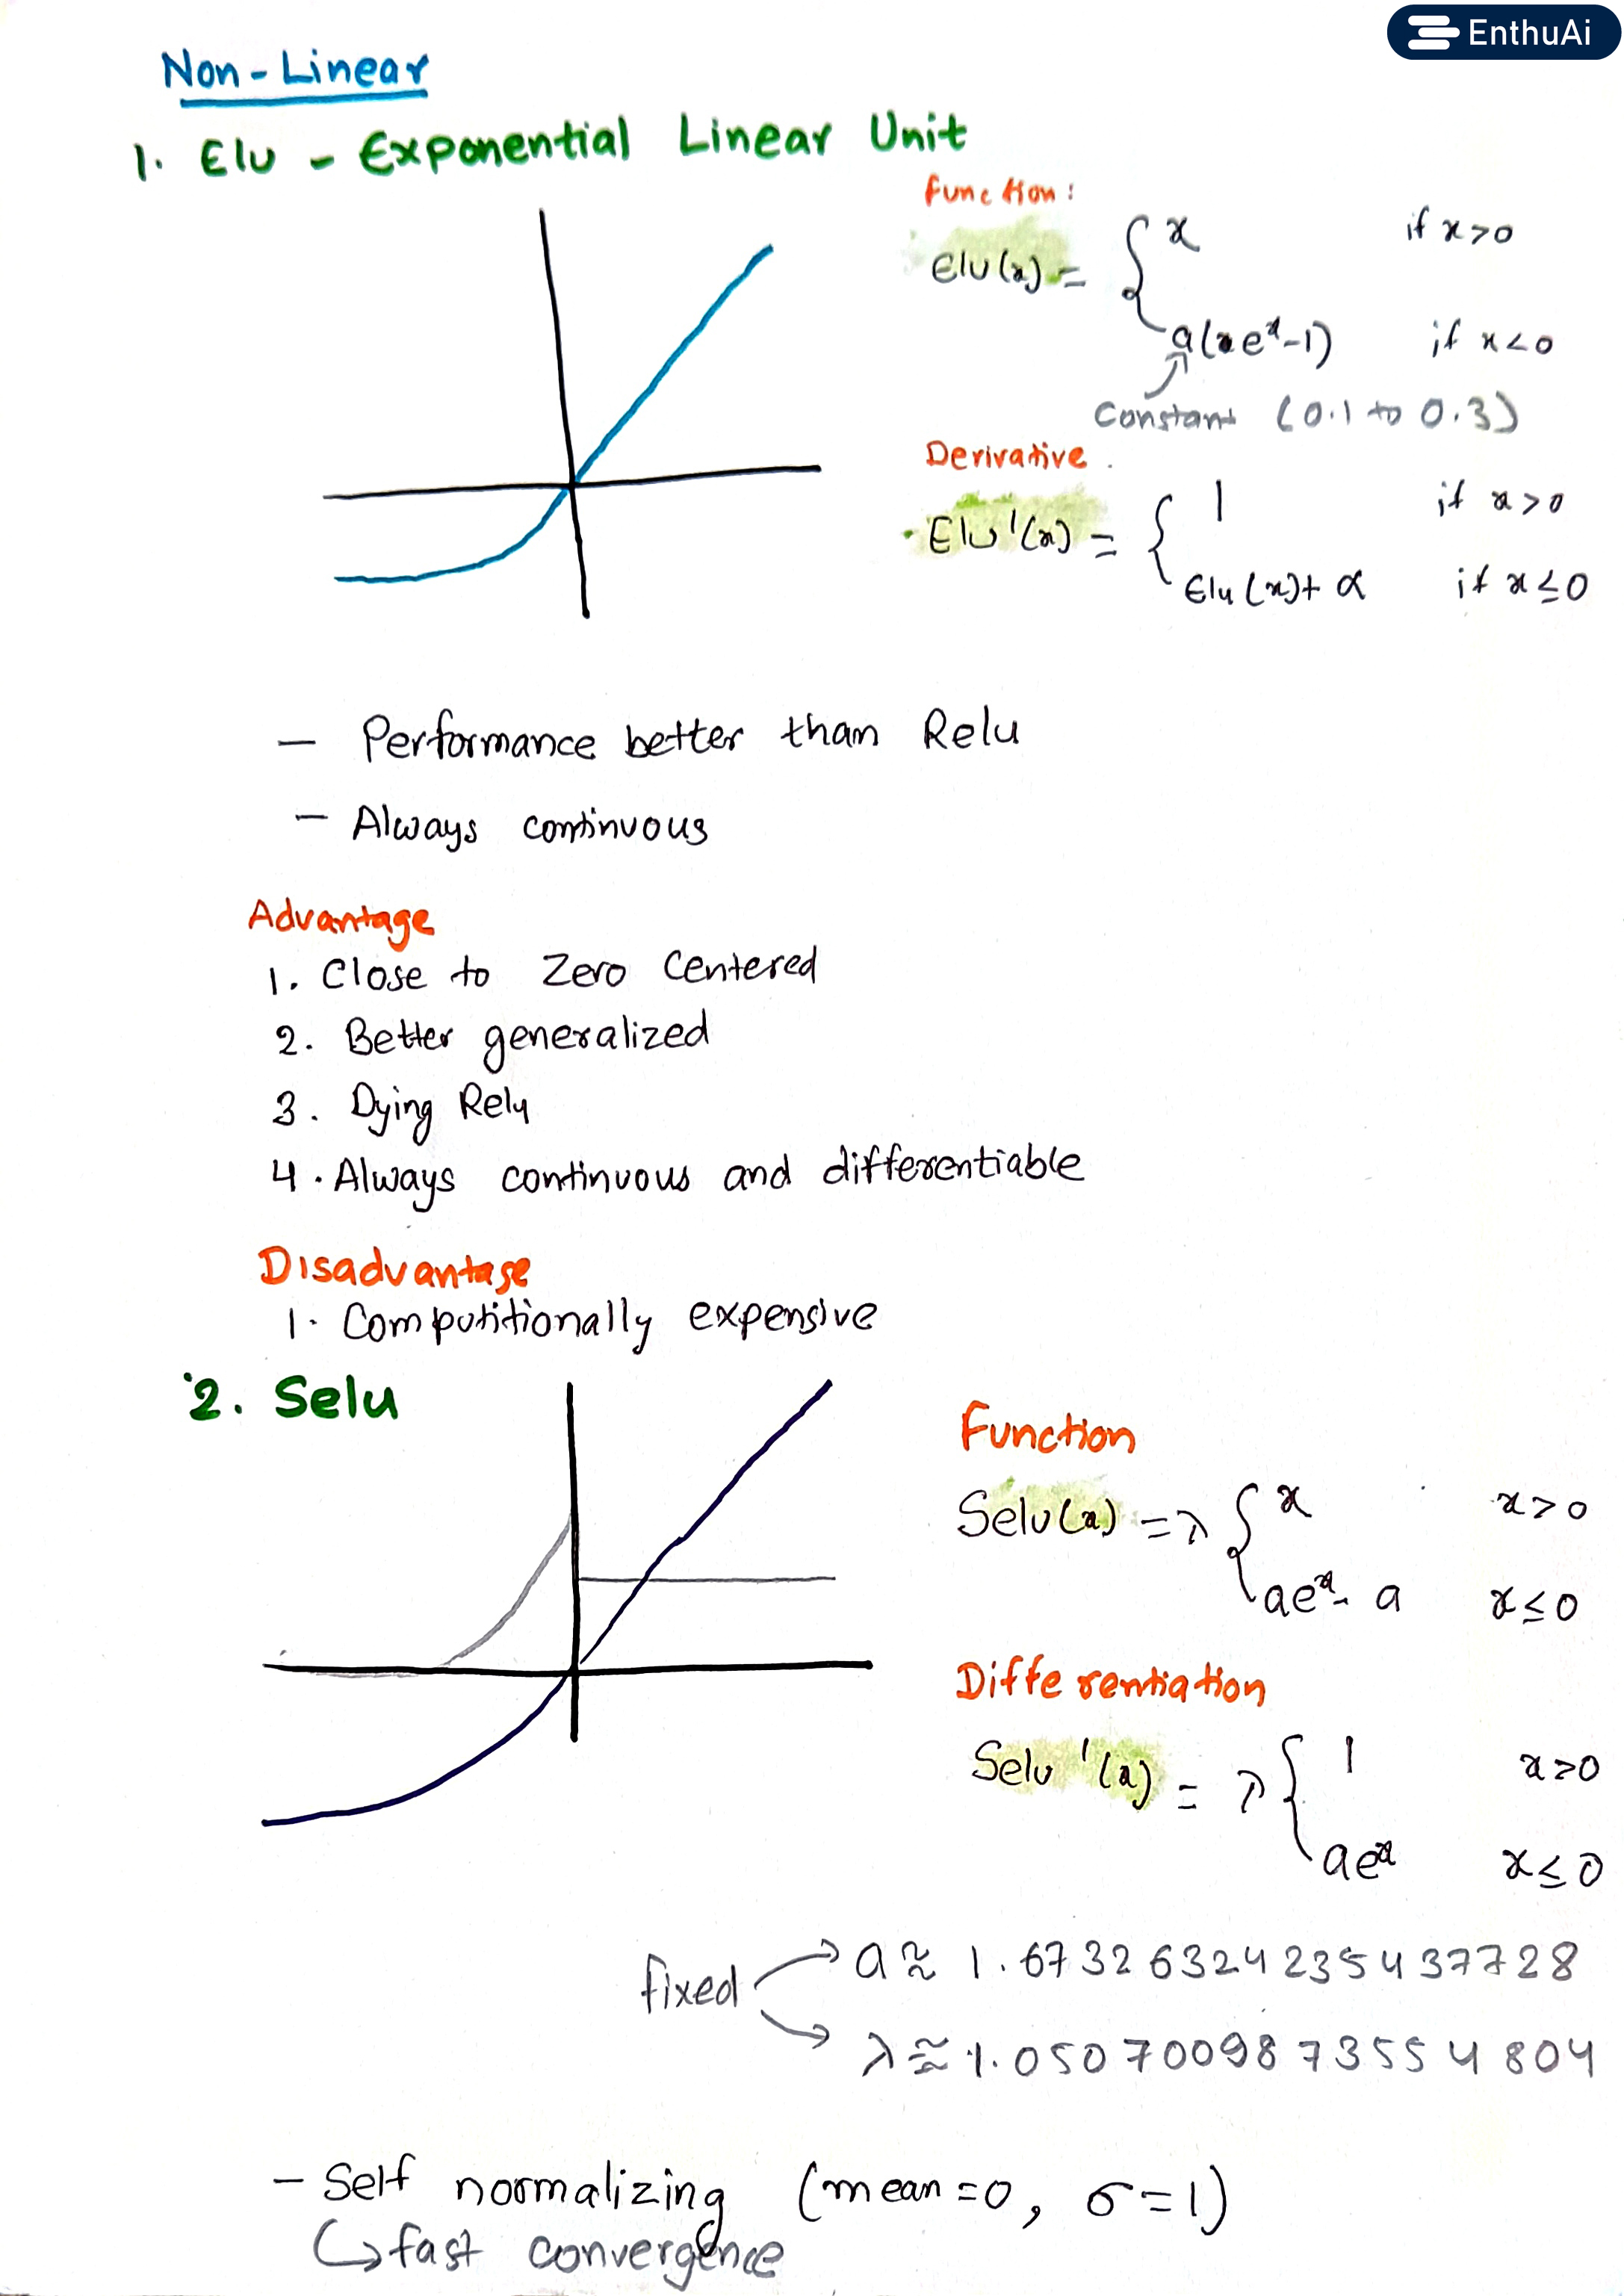 EnthuAi
Non-Linear
1. Elu - Exponential Linear Unit
Function:
Elu(x) = { x if x>0
a(e^x-1) if x<0
Constant (0.1 to 0.3)
Derivative
Elu'(x) = { 1 if x>0
Elu(x)+α if x≤0
- Performance better than Relu
- Always continuous
Advantage
1. Close to Zero Centered
2. Better generalized
3. Dying Relu
4. Always continuous and differentiable
Disadvantage
1. Computitionally expensive
2. Selu
Function
Selu(x) = λ { x x>0
ae^x - a x≤0
Differentiation
Selu'(x) = λ { 1 x>0
ae^x x≤0
fixed
a ≈ 1.6732632423543 7728
λ ≈ 1.0507009873554804
- Self normalizing (mean=0, σ=1)
↳ fast convergence